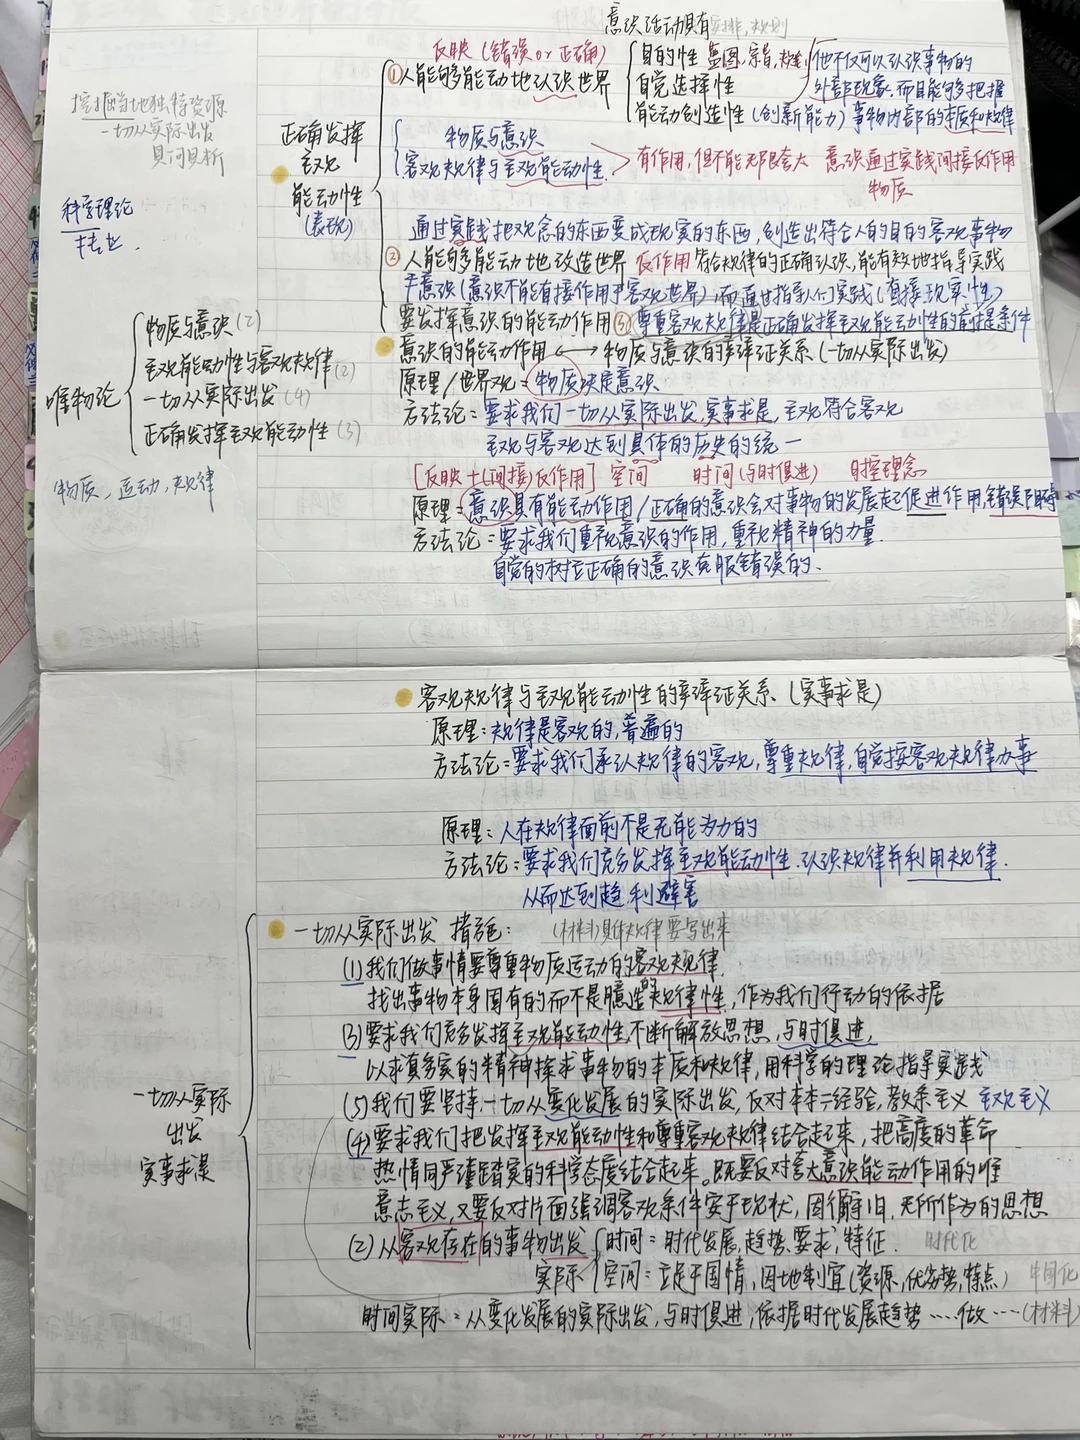 意识活动具有
安排,规划
反映(错误or正确)
①人能够能动地认识世界
目的性 蓝图,宗旨,
自觉选择性
能动创造性(创新能力)
他不仅可以认识事物的
外部现象,而且能够把握
事物内部的本质和规律
挖掘当地独特资源
一切从实际出发
具问具析
科学理论
正确发挥
主观
能动性
(表现)
物质与意识
客观规律与主观能动性
有作用,但不能无限夸大 意识通过实践间接反作用
物质
通过实践把观念的东西变成现实的东西,创造出符合人的目的客观事物
②人能够能动地改造世界 反作用 符合规律的正确认识,能有效地指导实践
于意识(意识不能直接作用于客观世界),而通过指导人们实践(直接现实性)
要发挥意识的能动作用 ③尊重客观规律是正确发挥主观能动性的前提条件
意识的能动作用 ⟷ 物质与意识的辩证关系(一切从实际出发)
唯物论
物质与意识(2)
主观能动性与客观规律(2)
一切从实际出发(4)
正确发挥主观能动性(3)
物质,运动,规律
原理/世界观:物质决定意识
方法论:要求我们一切从实际出发,实事求是,主观符合客观
主观与客观达到具体的历史的统一
[反映+(间接)反作用] 空间 时间(与时俱进) 理念
原理:意识具有能动作用/正确的意识会对事物的发展起促进作用,错误阻碍
方法论:要求我们重视意识的作用,重视精神的力量
自觉的树立正确的意识克服错误的.
客观规律与主观能动性的辩证关系(实事求是)
原理:规律是客观的,普遍的
方法论:要求我们承认规律的客观,尊重规律,自觉按客观规律办事
原理:人在规律面前不是无能为力的
方法论:要求我们充分发挥主观能动性.认识规律并利用规律.
从而达到趋利避害
一切从实际
出发
实事求是
一切从实际出发 措施: (材料)具体规律要写出来
(1)我们做事情要尊重物质运动的客观规律.
找出事物本身固有的而不是臆造的规律性,作为我们行动的依据
(3)要求我们充分发挥主观能动性,不断解放思想,与时俱进,
以求真务实的精神探求事物的本质和规律,用科学的理论指导实践
(5)我们要坚持一切从变化发展的实际出发,反对本本=经验,教条主义 主观主义
(4)要求我们把发挥主观能动性和尊重客观规律结合起来,把高度的革命
热情同严谨踏实的科学态度结合起来。既要反对夸大意识能动作用的唯
意志主义,又要反对片面强调客观条件安于现状,因循守旧,无所作为的思想
(2)从客观存在的事物出发
时间:时代发展,趋势,要求,特征. 时代化
实际
空间:立足于国情,因地制宜(资源,优劣势,特点) 中国化
时间实际:从变化发展的实际出发,与时俱进,依据时代发展趋势……做……(材料)